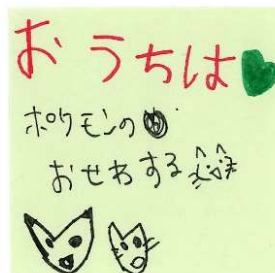 おうちは
ポケモンの
おせわする